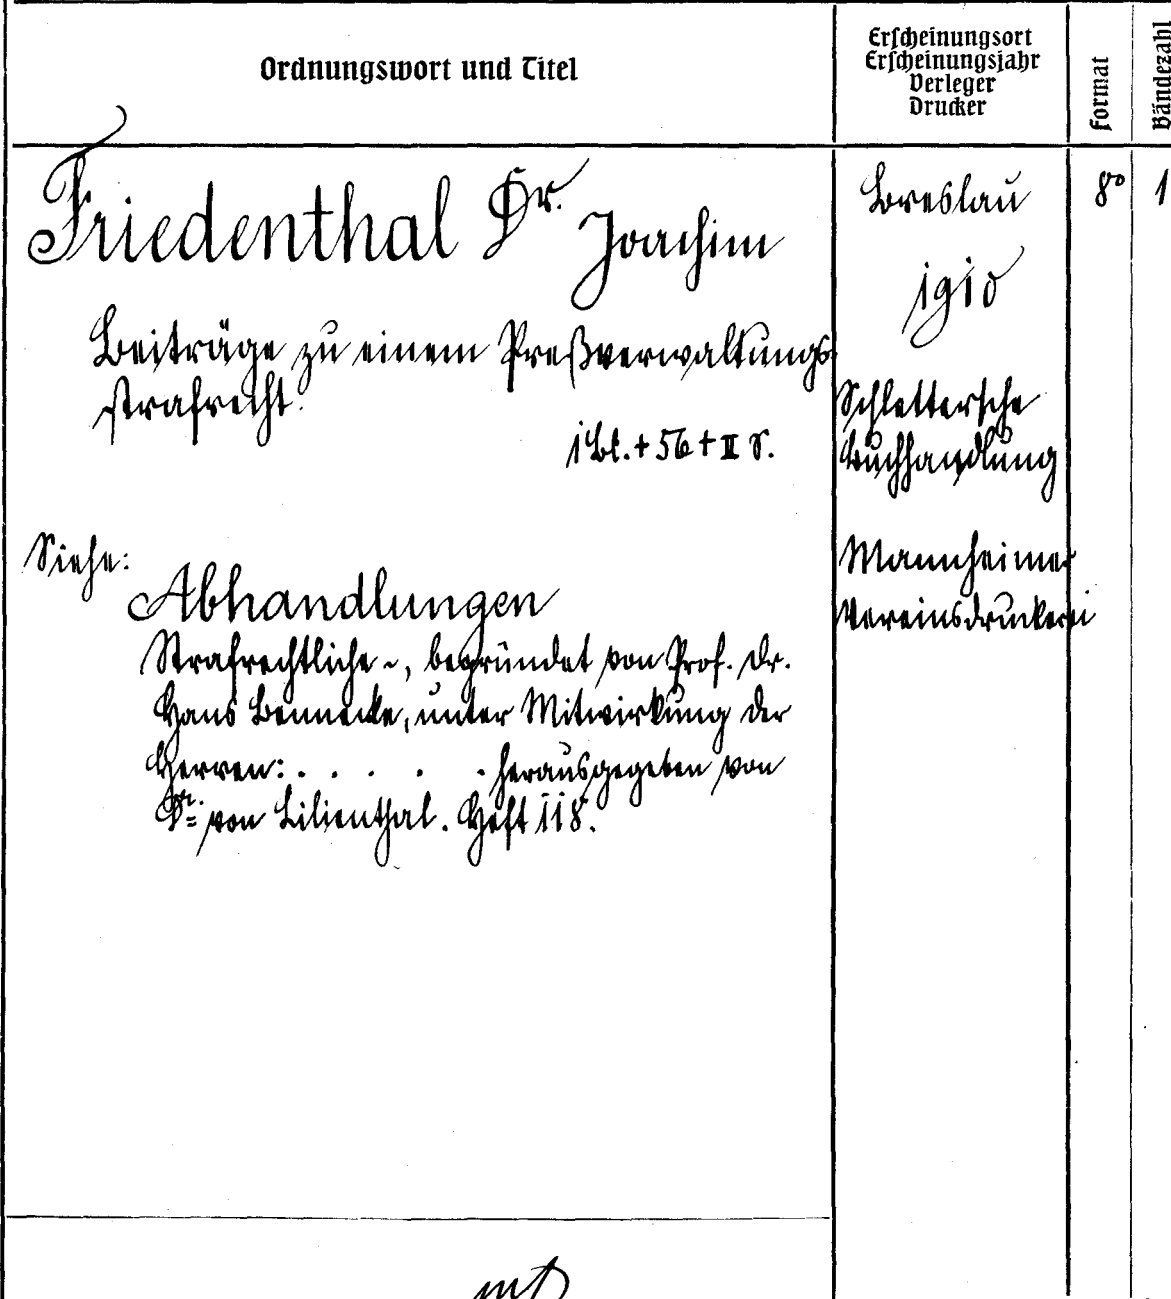 Ordnungswort und Titel
Erscheinungsort
Erscheinungsjahr
Verleger
Drucker
Format
Bändezahl
Friedenthal Dr. Joachim
Beiträge zu einem Preßverwaltungs-
strafrecht.
1 Bl. + 56 + II S.
Siehe:
Abhandlungen
Strafrechtliche ~, begründet von Prof. Dr.
Hans Bennecke, unter Mitwirkung der
Herren: . . . . . herausgegeben von
Dr. von Lilienthal. Heft 118.
Breslau
1910
Schlettersche
Buchhandlung
Mannheimer
Vereinsdruckerei
8°
1